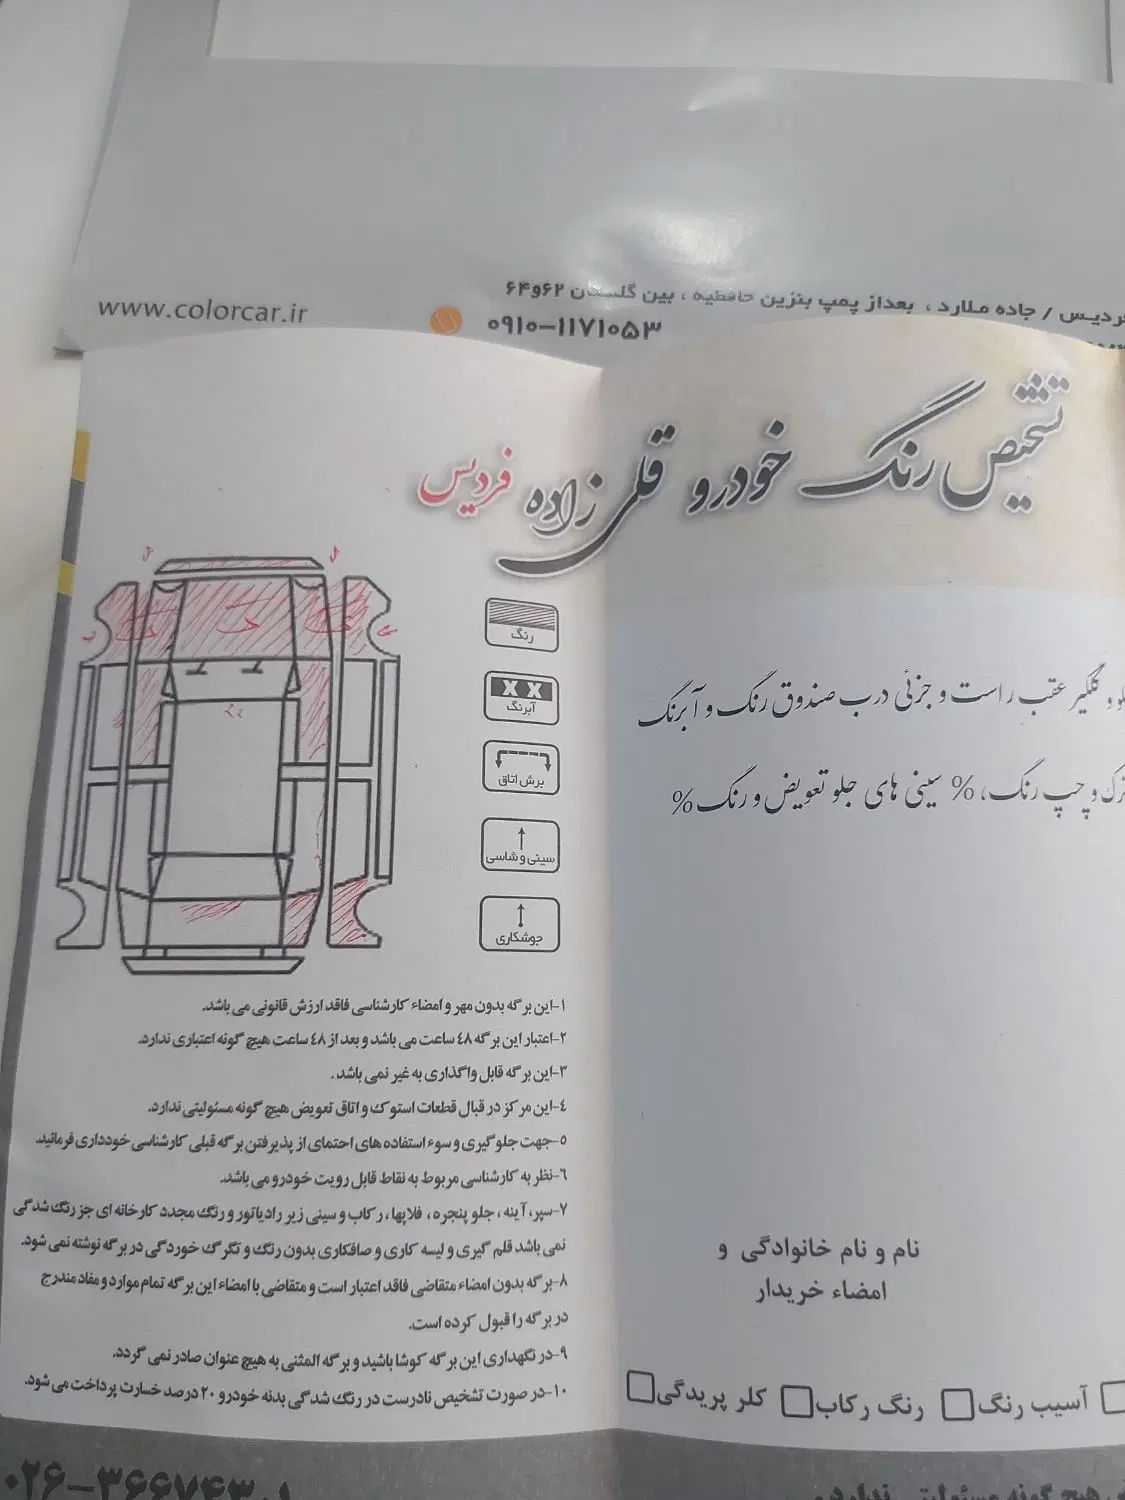 www.colorcar.ir
جاده ملارد ، بعداز پمپ بنزین حافظیه ، بین گلستان ۶۲و۶۴
۰۹۱۰-۱۱۷۱۰۵۳
تشخیص رنگ خودرو قلی زاده فردیس
رنگ
X X
آبرنگ
برش اتاق
سینی و شاسی
جوشکاری
گلگیر عقب راست و جزئی درب صندوق رنگ و آبرنگ
و چپ رنگ، % سینی های جلو تعویض و رنگ %
۱-این برگه بدون مهر و امضاء کارشناسی فاقد ارزش قانونی می باشد.
۲-اعتبار این برگه ٤٨ ساعت می باشد و بعد از ٤٨ ساعت هیچ گونه اعتباری ندارد.
۳-این برگه قابل واگذاری به غیر نمی باشد .
٤-این مرکز در قبال قطعات استوک و اتاق تعویض هیچ گونه مسئولیتی ندارد.
۵-جهت جلوگیری و سوء استفاده های احتمای از پذیرفتن برگه قبلی کارشناسی خودداری فرمائید.
٦-نظر به کارشناسی مربوط به نقاط قابل رویت خودرو می باشد.
۷-سپر، آینه ، جلو پنجره ، فلاپها، رکاب و سینی زیر رادیاتور و رنگ مجدد کارخانه ای جز رنگ شدگی
نمی باشد قلم گیری و لیسه کاری و صافکاری بدون رنگ و تگرگ خوردگی در برگه نوشته نمی شود.
۸-برگه بدون امضاء متقاضی فاقد اعتبار است و متقاضی با امضاء این برگه تمام موارد و مفاد مندرج
در برگه را قبول کرده است.
۹-در نگهداری این برگه کوشا باشید و برگه المثنی به هیچ عنوان صادر نمی گردد.
۱۰-در صورت تشخیص نادرست در رنگ شدگی بدنه خودرو ۲۰ درصد خسارت پرداخت می شود.
نام و نام خانوادگی و
امضاء خریدار
آسیب رنگ
رنگ رکاب
کلر پریدگی